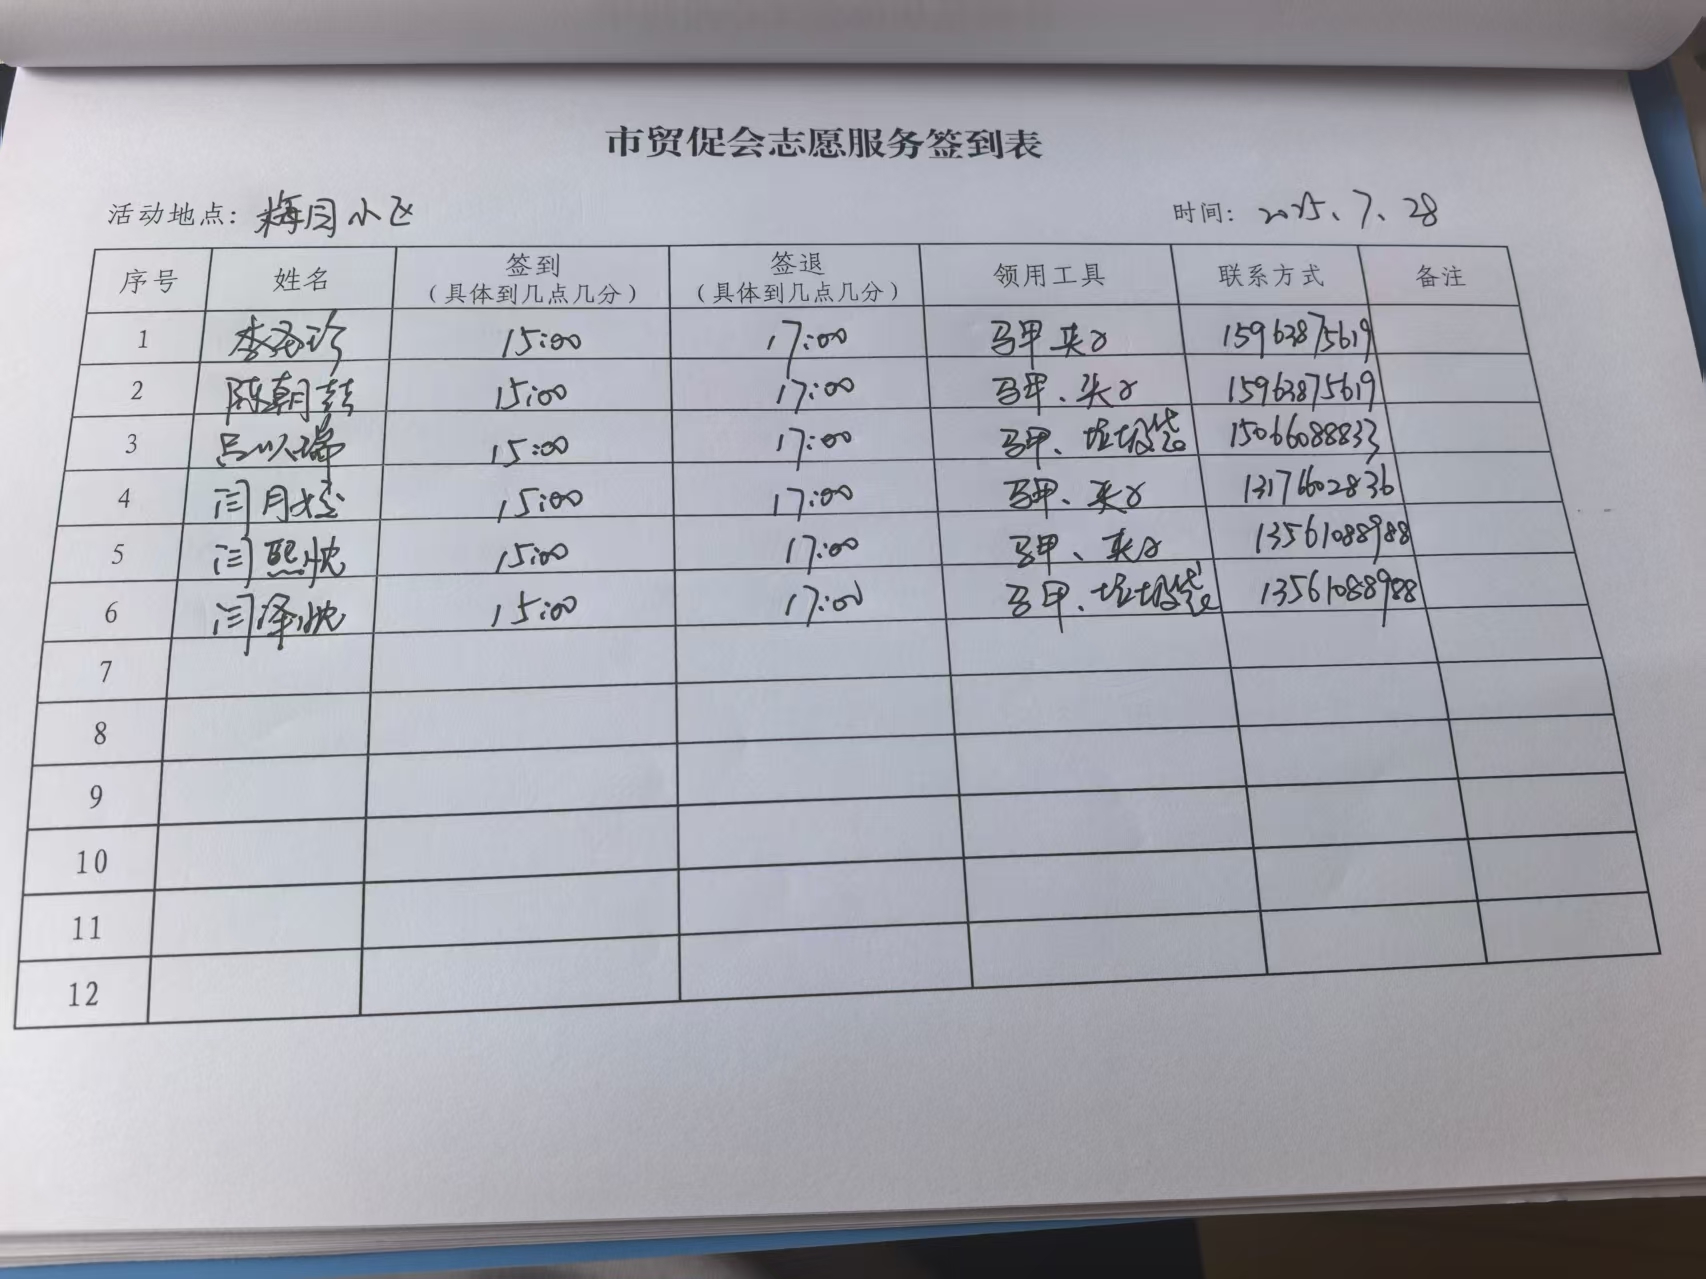 市贸促会志愿服务签到表
活动地点: 梅园小区 时间: 2025、7、28
序号 姓名 签到（具体到几点几分） 签退（具体到几点几分） 领用工具 联系方式 备注
1 李 珍 15:00 17:00 马甲 夹子 15963875619
2 陈朝喆 15:00 17:00 马甲、夹子 15963875619
3 吕以瑞 15:00 17:00 马甲、垃圾袋 15066088833
4 闫月 15:00 17:00 马甲、夹子 13176602836
5 闫熙忱 15:00 17:00 马甲、夹子 13561088988
6 闫泽忱 15:00 17:00 马甲、垃圾袋 13561088988
7
8
9
10
11
12